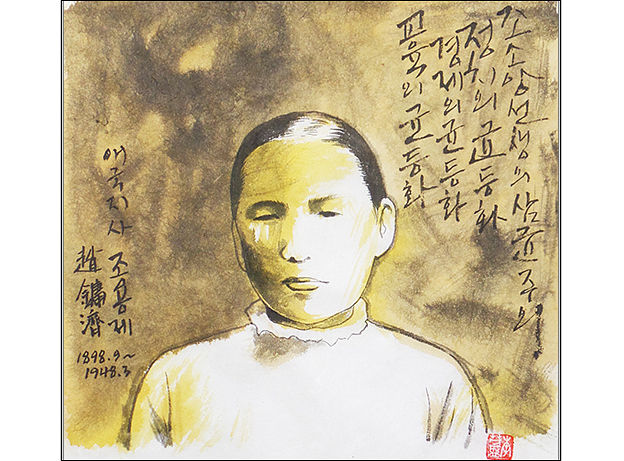 조소앙선생의 삼균주의!
정치의 균등화
경제의 균등화
교육의 균등화
애국지사 조용제
趙鏞濟
1898.9~
1948.3